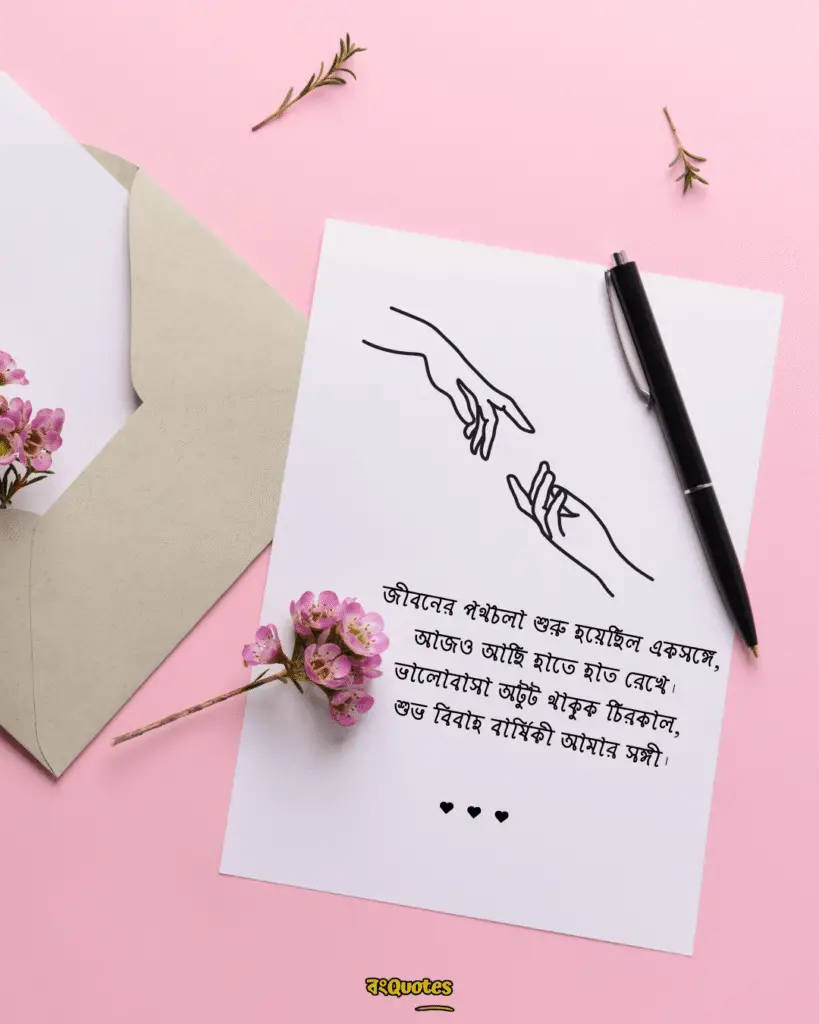 জীবনের পথচলা শুরু হয়েছিল একসঙ্গে,
আজও আছি হাতে হাত রেখে।
ভালোবাসা অটুট থাকুক চিরকাল,
শুভ বিবাহ বার্ষিকী আমার সঙ্গী।
বংQuotes